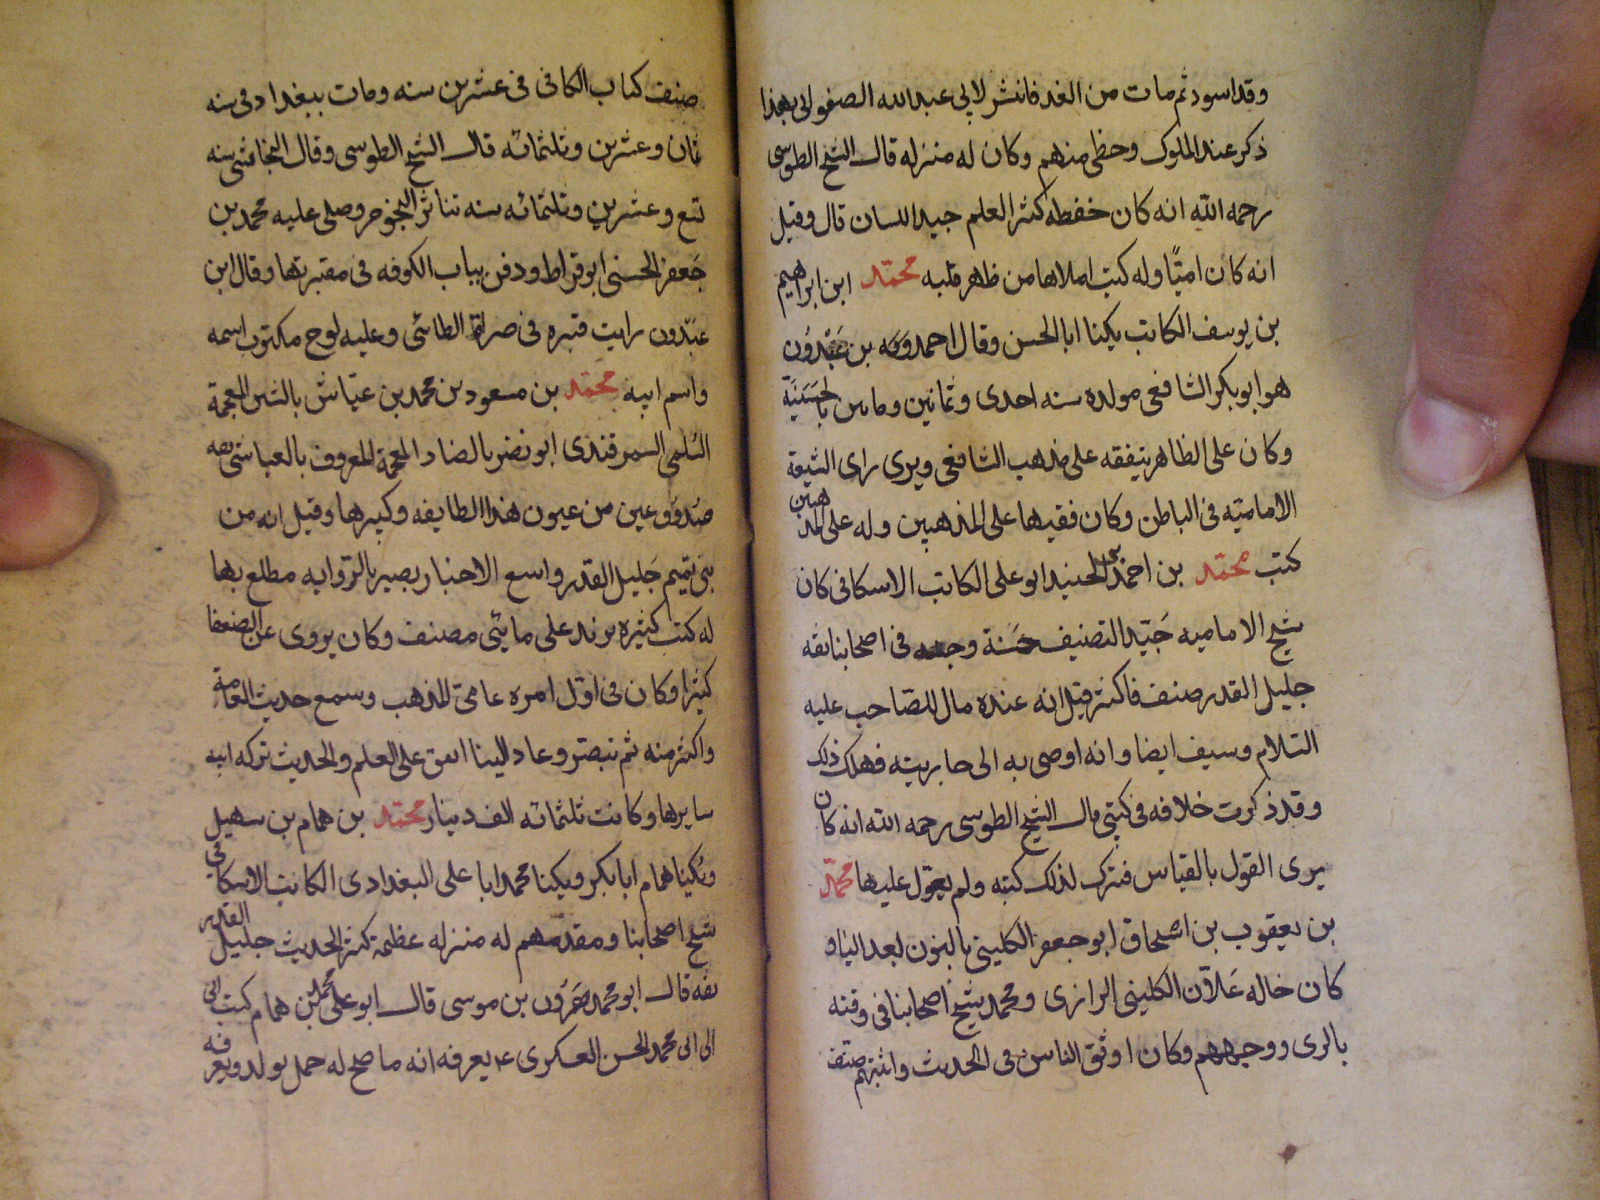 وقد اسود ثم مات من الغد فانتشر لابي عبد الله الصفواني بهذا
ذكر عند الملوك وحظى منهم وكان له منزله قال الشيخ الطوسى
رحمه الله انه كان حفظه كثير العلم جيد اللسان قال وقيل
انه كان اميّا وله كتب املاها من ظهر قلبه محمّد ابن ابراهيم
بن يوسف الكاتب يكنا ابا الحسن وقال احمد بن عَبْدوُن
هو ابو بكر الشافعى مولده سنه احدى وثمانين ومايتين بالحسَنيَّة
وكان على الظاهر يتفقه على مذهب الشافعى ويرى راى الشيعة
الاماميّه فى الباطن وكان فقيها على المذهبين وله على المذهبين
كتب محمّد بن احمد بن الجنيد ابو على الكاتب الاسكافى كان
شيخ الاماميه جَيّد التصنيف حسَنة وجه فى اصحابنا ثقه
جليل القدر صنف فاكثر قيل انه عنده مال للصّاحب عليه
السّلام وسيف ايضا وانه اوصى به الى جاريته فهلك ذلك
وقد ذكرت خلافه فى كتبى قال الشيخ الطوسى رحمه الله انه كان
يرى القول بالقياس فترك لذلك كتبه ولم يعوّل عليها محمّد
بن يعقوب بن اسحاق ابو جعفر الكلينى بالنون بعد الياء و
كان خاله عَلاّن الكلينى الرازى ومحمد شيخ اصحابنا فى وقته
بالرى ووجههم وكان اوثق الناس فى الحديث واثبتهم صنّف
صنف كتاب الكافى فى عشرين سنه ومات ببغداد فى سنه
ثمان وعشرين وثلثمائه قال الشيخ الطوسى وقال النجاشى سنه
تسع وعشرين وثلثمائه سنه تناثر النجوم وصلى عليه محمد بن
جَعفر الحسنى ابو قراط ودفن بباب الكوفه فى مقبرتها وقال ابن
عَبْدون رايت قبره فى صراة الطائى وعليه لوح مكتوب اسمه
واسم ابيه محمّد بن مسعود بن محمد بن عيّاش بالشين المعجمة
السُلمى السمرقندى ابو نضر بالضاد المعجمة المعروف بالعياشى ثقه
صَدوُق عين من عيون هذا الطايفه وكبيرها وقيل انه من
بنى تميم جَليل القدر واسع الاخبار بصير بالرّوايه مطلع بها
له كتب كثيره تزيد على مايتى مصنف وكان يروى عن الضعفا
كثيرا وكان فى اوّل امره عامى المذهب وسمع حديث العَامّة
واكثر منه ثم تبصّر وعاد الينا انفق على العلم والحديث تركه ابيه
سايرها وكانت ثلثمائه الف دينار محمّد بن همام بن سهيل
ويُكَنا همام ابا بكر ويكنا محمد ابا على البغدادى الكاتب الاسكافى
شيخ اصحابنا ومقدمهم له منزله عظيمة كثير الحديث جليل القدر
ثقه قال ابو محمد هَرون بن موسى قال ابو على محمد بن همام كتب ابى
الى ابى محمد الحسن العسكرى ع يعرفه انه ما صح له حمل بولد ويعرفه